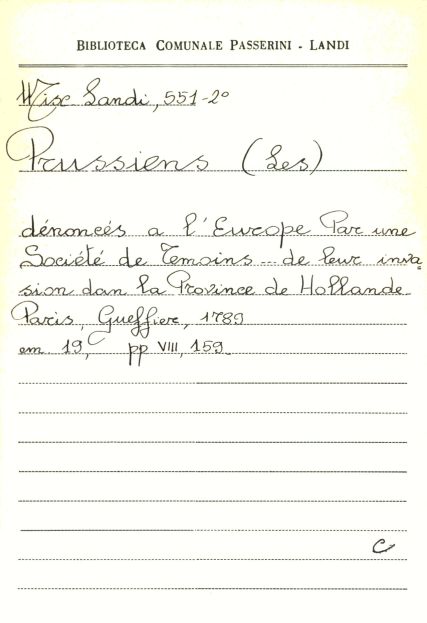 BIBLIOTECA COMUNALE PASSERINI - LANDI
Misc. Landi, 551-2°
Prussiens (Les)
dénoncés a l'Europe Par une
Société de Temoins ... de leur inva
sion dan la Province de Hollande
Paris, Gueffier, 1789
cm. 19, pp VIII, 159.
C